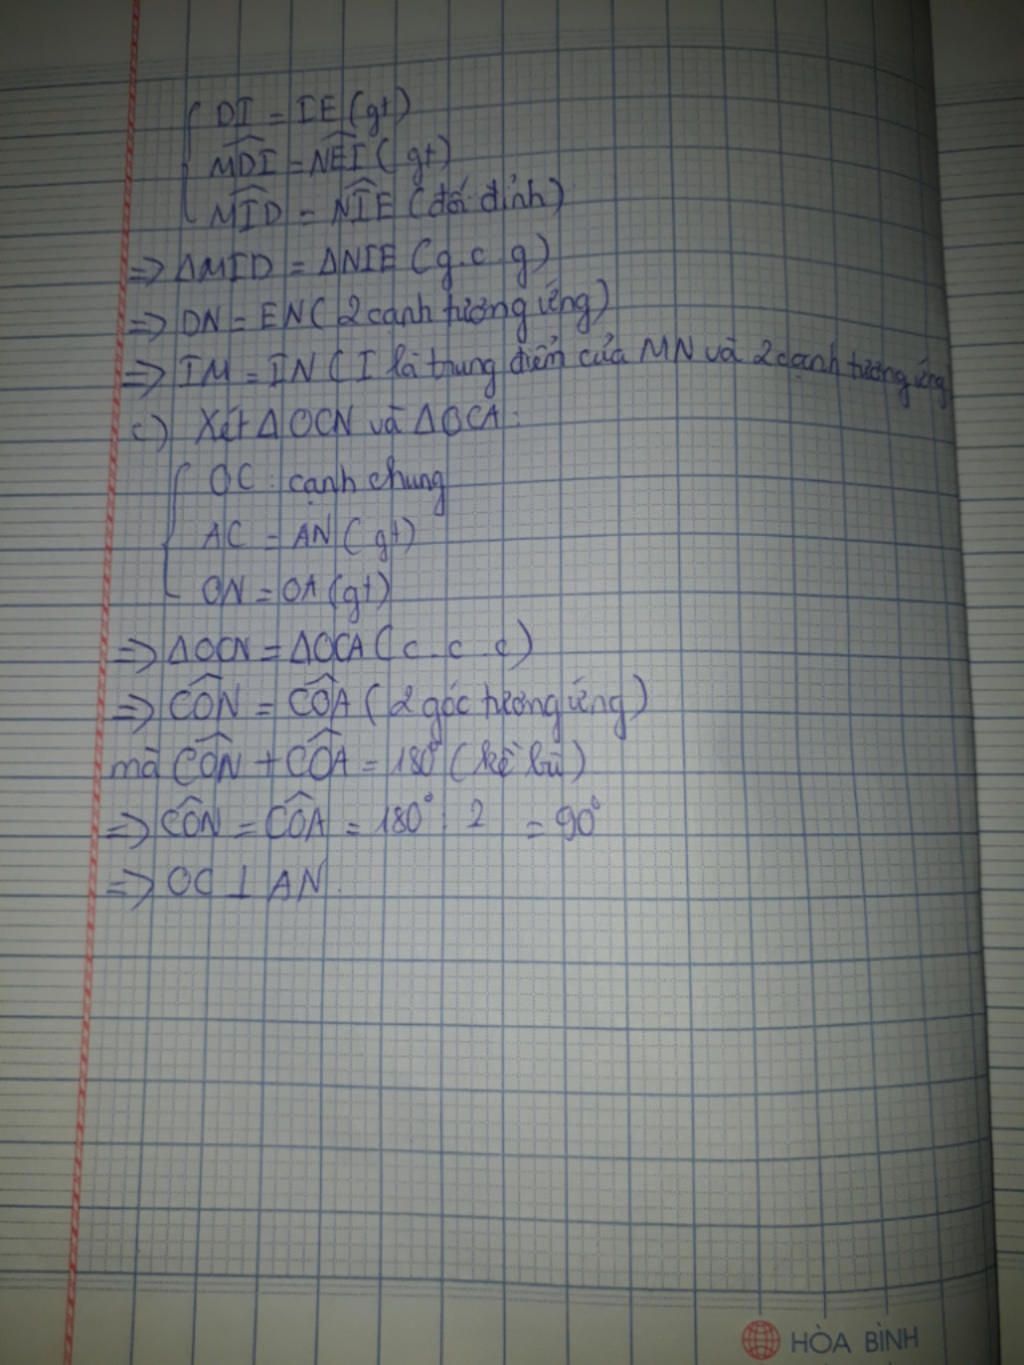 DI = IE (gt)
MDI = NEI (gt)
MID = NIE (đối đỉnh)
=> ΔMID = ΔNIE (g.c.g)
=> DN = EN ( 2 cạnh tương ứng)
=> IM = IN ( I là trung điểm của MN và 2 cạnh tương ứng
c) Xét ΔOCN và ΔOCA:
OC : cạnh chung
AC = AN (gt)
ON = OA (gt)
=> ΔOCN = ΔOCA (c.c.c)
=> CON = COA ( 2 góc tương ứng)
mà CON + COA = 180° (kề bù)
=> CON = COA = 180° : 2 = 90°
=> OC ⊥ AN.
HÒA BÌNH